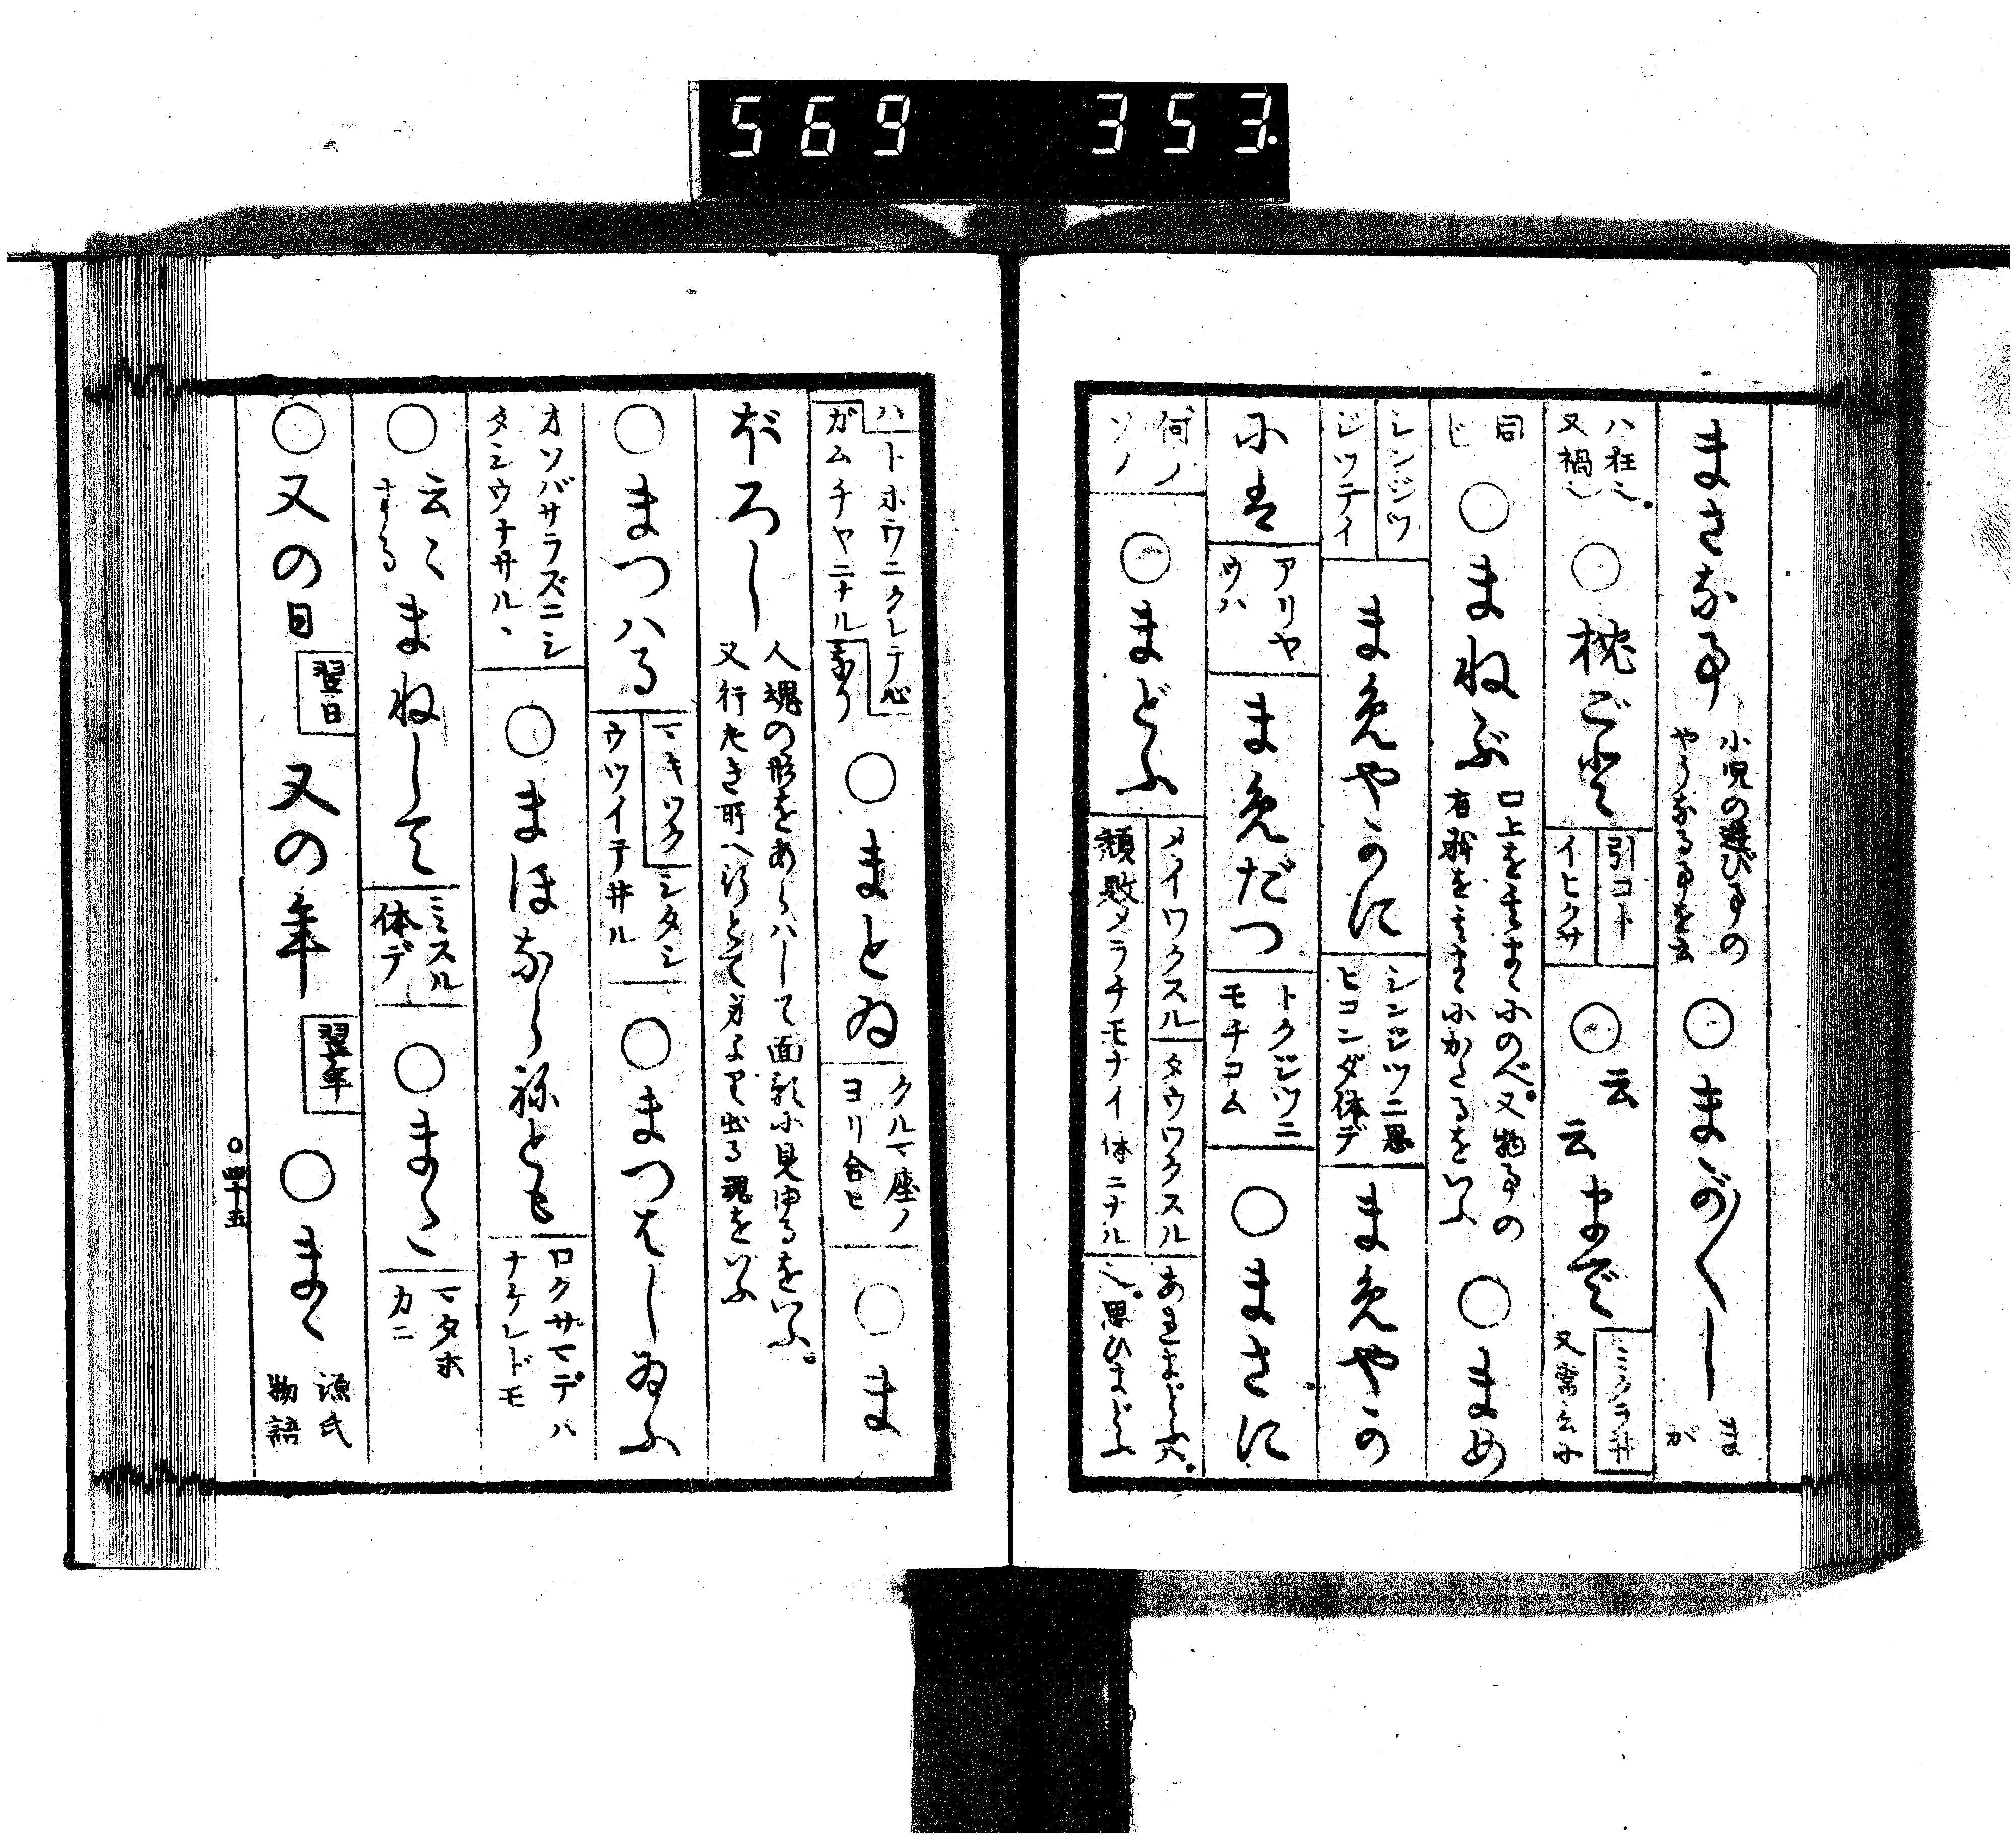 569 353
まさな事 小児の遊び事の やうなる事を云 ○まが〳〵し まが
ハ狂也。又禍也 ○枕ごと 引コト イヒクサ ○云云まで ミクラ井 又常云
同じ ○まねぶ 口上を其まゝにのべ。又物事の 有様を其まゝにかたるをいふ ○まめ
シンジツ ジツテイ まめやかに シンジツニ思 ヒコンダ体デ まめやか
には アリヤウハ まめだつ トクジツニ モチコム ○まさに
何ノ ソノ ○まどふ メイワクスル タウワクスル 顔敗メラチモナイ体ニナル 也。思ひまどふ
ハトホウニクレテ心 ガムチヤニナル 事り ○まとゐ クルマ座ノ ヨリ合ヒ ○ま
ぼろし 人魂の形をあらハして面影に見ゆるをいふ。 又行たき所へ行とて身より出る魂をいふ
○まつハる マキツク シタシ ウツイテ井ル ○まつはしゐふ
オソバサラズニシ タシウナサル、 ○まほならねども ロクサマデハ ナケレドモ
○云〻する まねして ミスル 体デ ○まゝ マタホ カニ
○又の日 翌日 又の年 翌年 ○まゝ 源氏 物語
○四十五